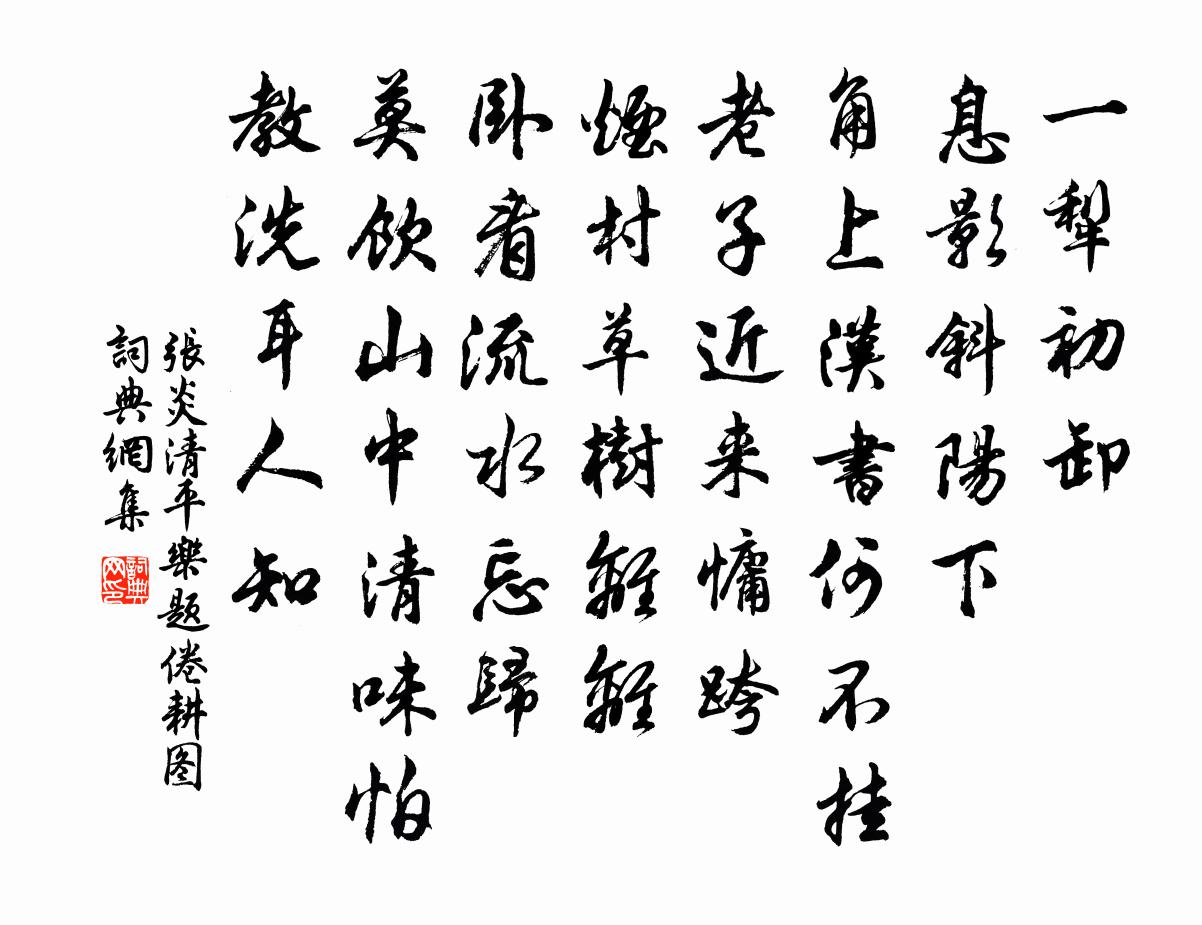 一犁初卸
息影斜陽下
角上漢書何不挂
老子近来慵跨
煙村草樹離離
卧看流水忘歸
莫飲山中清味怕
教洗耳人知
張炎清平樂題倦耕图
詞典網集
詞典网印